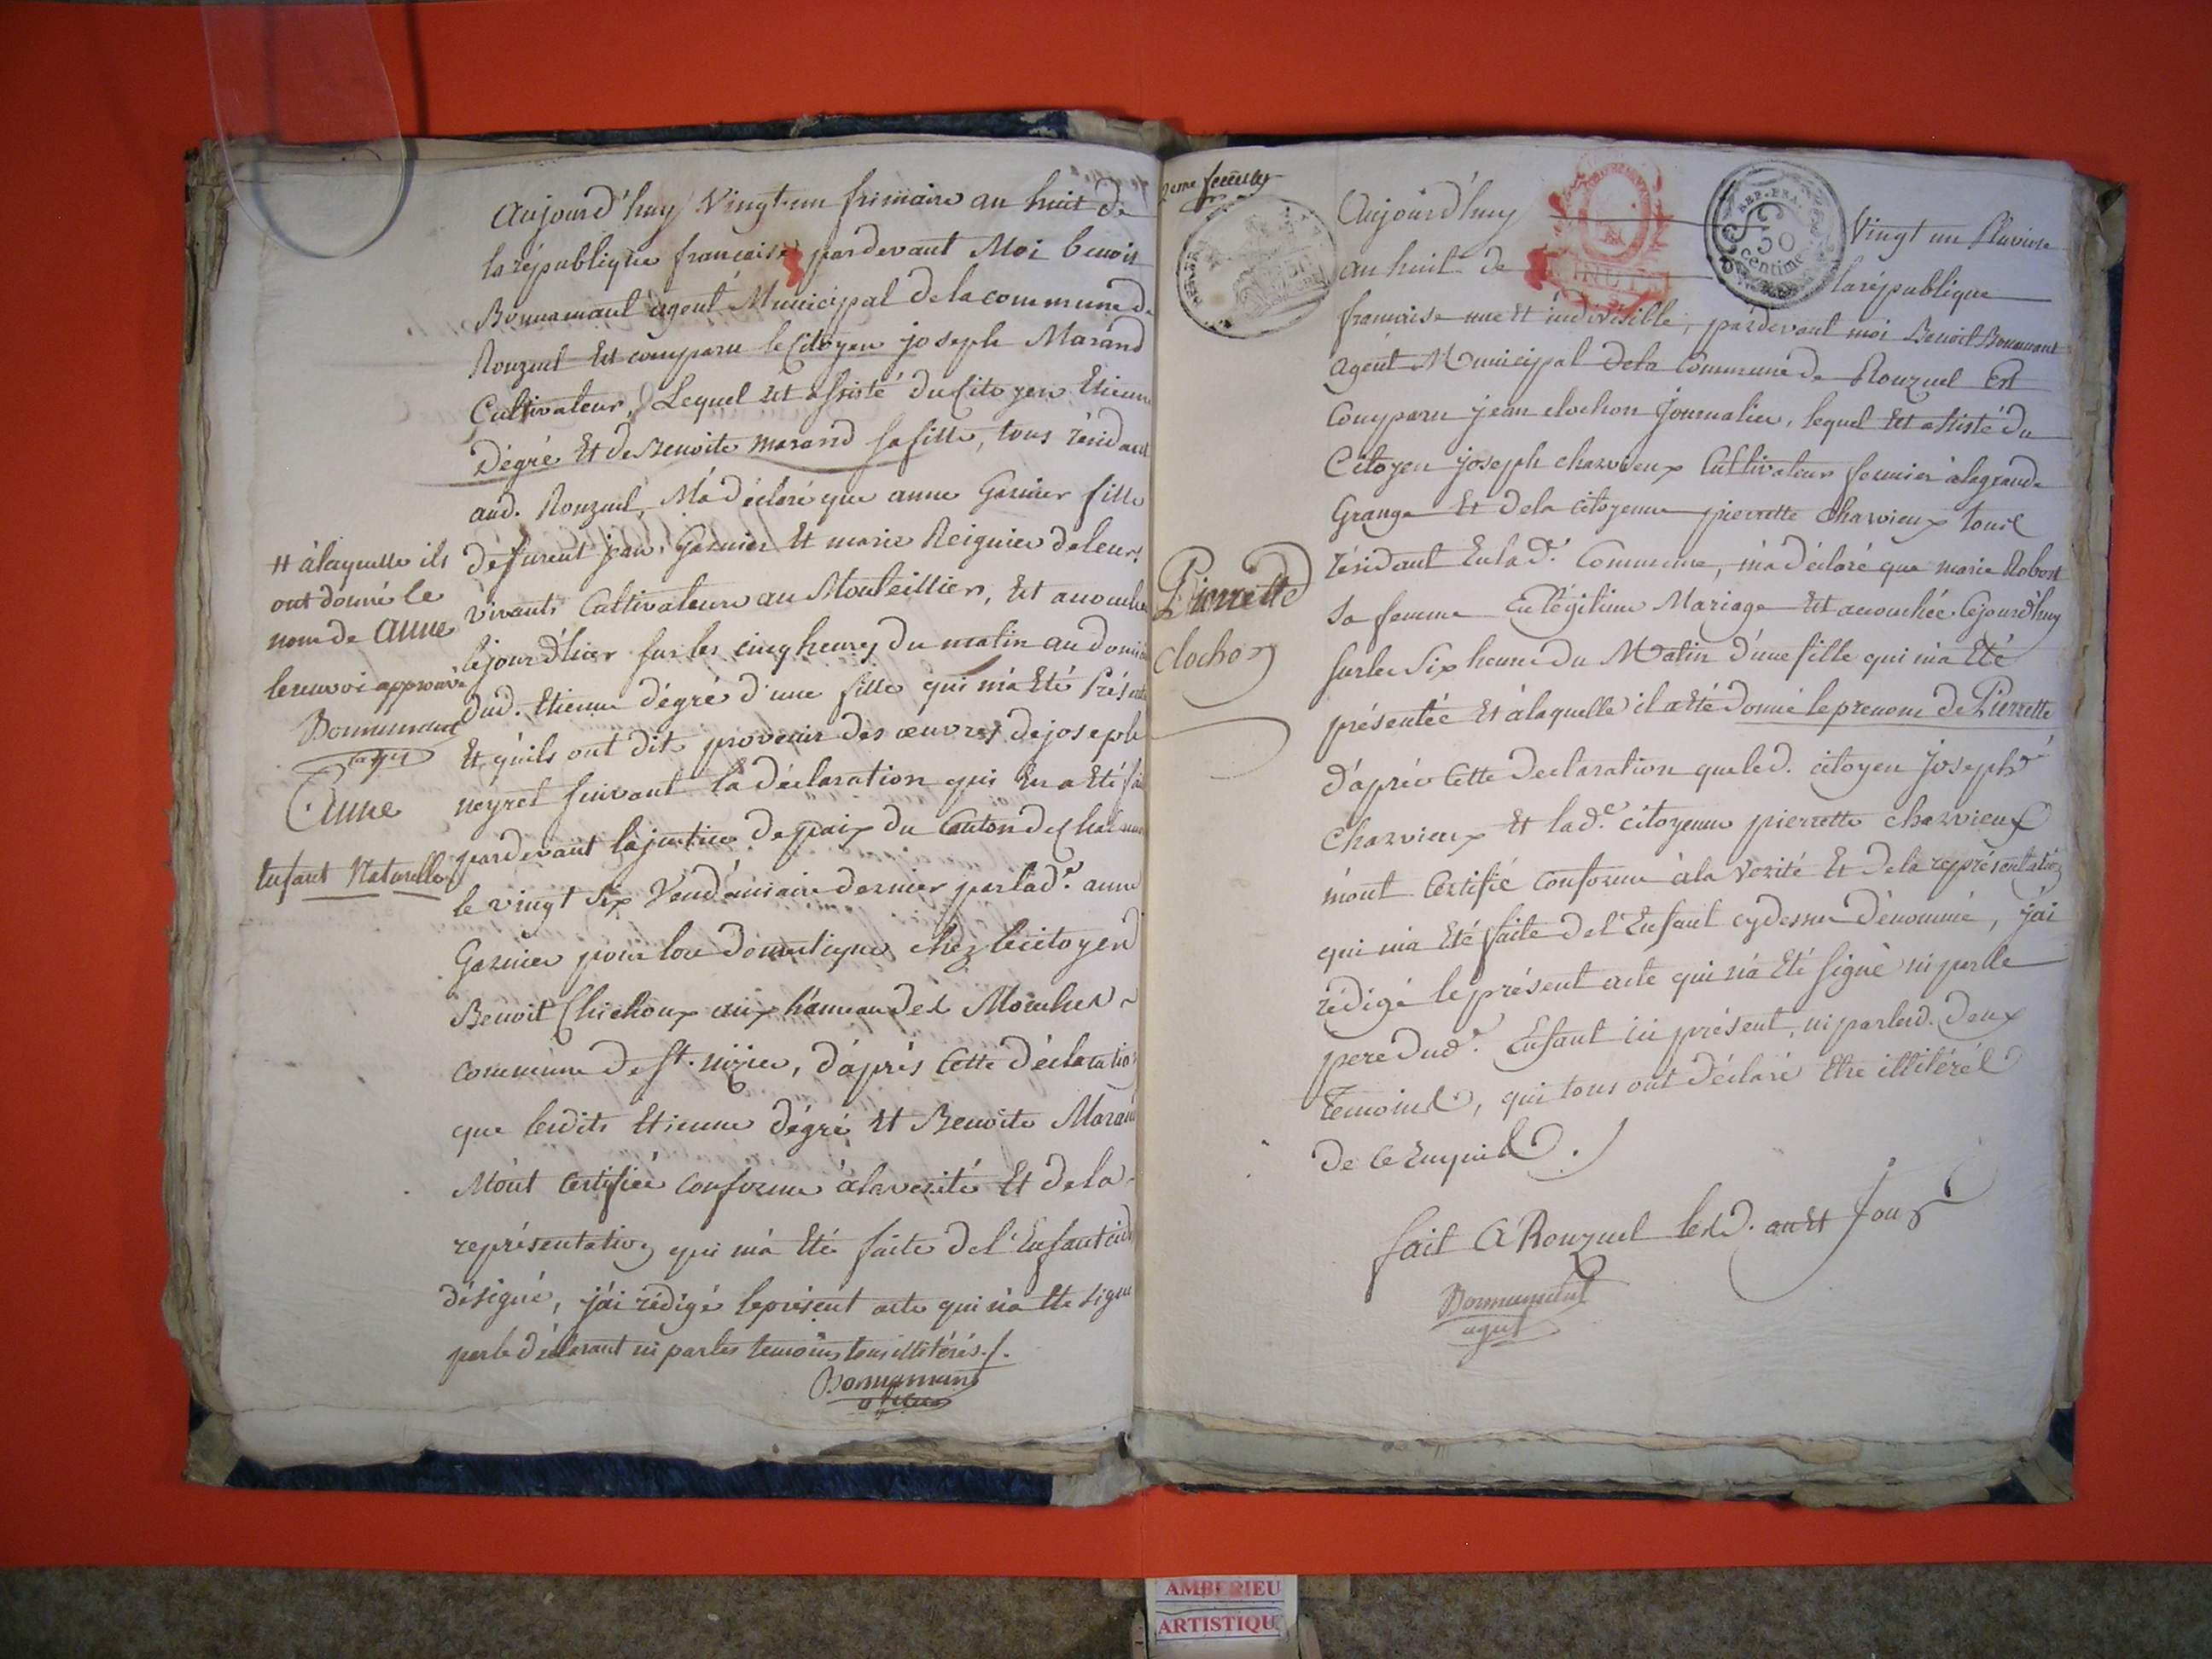 Aujourd'huy Vingt un frimaire an huit de
la république française pardevant Moi benoit
Bonnamant agent Municipal de la commune de
Ronzuel Est comparu le Citoyen joseph Marand
Cultivateur, Lequel est assisté du Citoyen Etienne
Dégré Et de Benoite marand sa fille, tous résidant
aud. Ronzuel, M'a déclaré que anne Garnier fille
# à laquelle ils
ont donné le
nom de anne
le renvoi approuvé
Bonnamant
agent
Anne
Enfant Naturelle
de furent jean Garnier Et marie Reignier de leurs
vivants Cultivateurs au Monteillier, Est accouchée
le jour d'hier sur les cinq heures du matin au domicile
dud. Etienne dégré d'une fille qui m'a Eté Présentée
Et qu'ils ont dit provenir des œuvres de joseph
néyret suivant la déclaration qui En a Eté faite
pardevant la justice de paix du Canton de
le vingt Six Vendémiaire dernier par lade. anne
Garnier pour lors domestique chez le citoyen
Benoit Chichoux aux hameau des Mouches
commune de St. nizier, d'après Cette déclaration
que lesdits Etienne dégré Et Benoite Marand
M'ont Certifiée conforme à la verité Et de la
représentation qui m'a Eté faite de l'Enfant
désigné, j'ai rédigé le présent acte qui n'a Eté signé
par le déclarant ni par les temoins tous illitérés./.
Bonnamant
2eme feuillet
Aujourd'huy Vingt un Pluviose
REP. FRA.
50
centime
an huit de la république
française une Et indivisible, pardevant moi Benoit Bonnamant
agent Municipal de la Commune de Ronzuel Est
Comparu jean clochon Journalier, lequel Est assisté du
Citoyen joseph charvieux Cultivateur fermier à la grande
Grange Et de la citoyenne pierrette Charvieux tous
résidant En lade. Commune, m'a déclaré que marie Robert
Pierrette
clochon
sa femme En légitime Mariage Est accouchée cejourd'huy
sur les Six heures du Matin d'une fille qui m'a Eté
présentée Et à laquelle il a été donné le prenom de Pierrette
d'après Cette déclaration que led. citoyen joseph
Charvieux Et lade. citoyenne pierrette charvieux
m'ont Certifié conforme à la Verité Et de la représentation
qui m'a Eté faite de l'Enfant cy dessus dénommé, j'ai
rédigé le présent acte qui n'a Eté signé ni par le
pere dud. Enfant ici présent, ni par lesd. deux
Témoins, qui tous ont déclaré Etre illitérés
de ce Enquis./
fait A Ronzuel lesd. an Et jour
Bonnamant
agent
AMBERIEU
ARTISTIQU